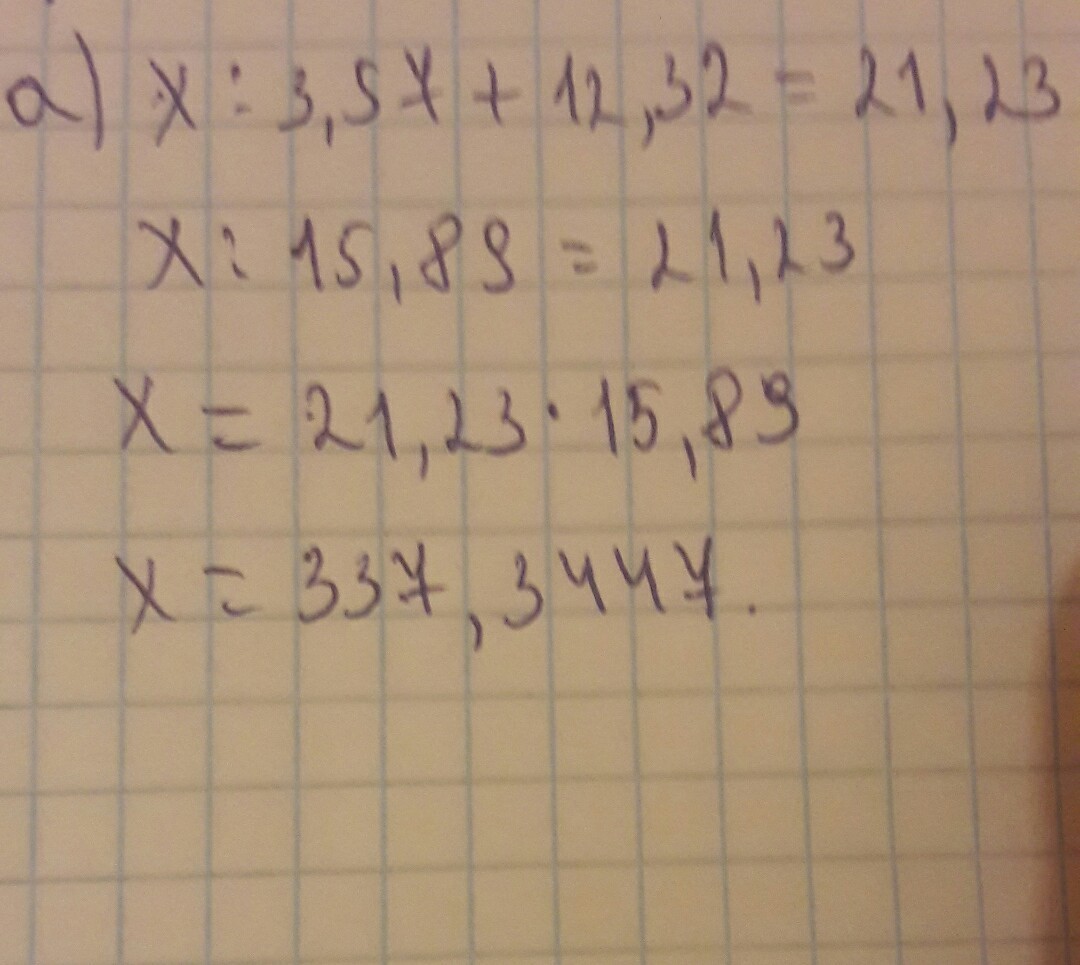 а) x : 3,57 + 12,32 = 21,23
x : 15,89 = 21,23
x = 21,23 · 15,89
x = 337,3447.